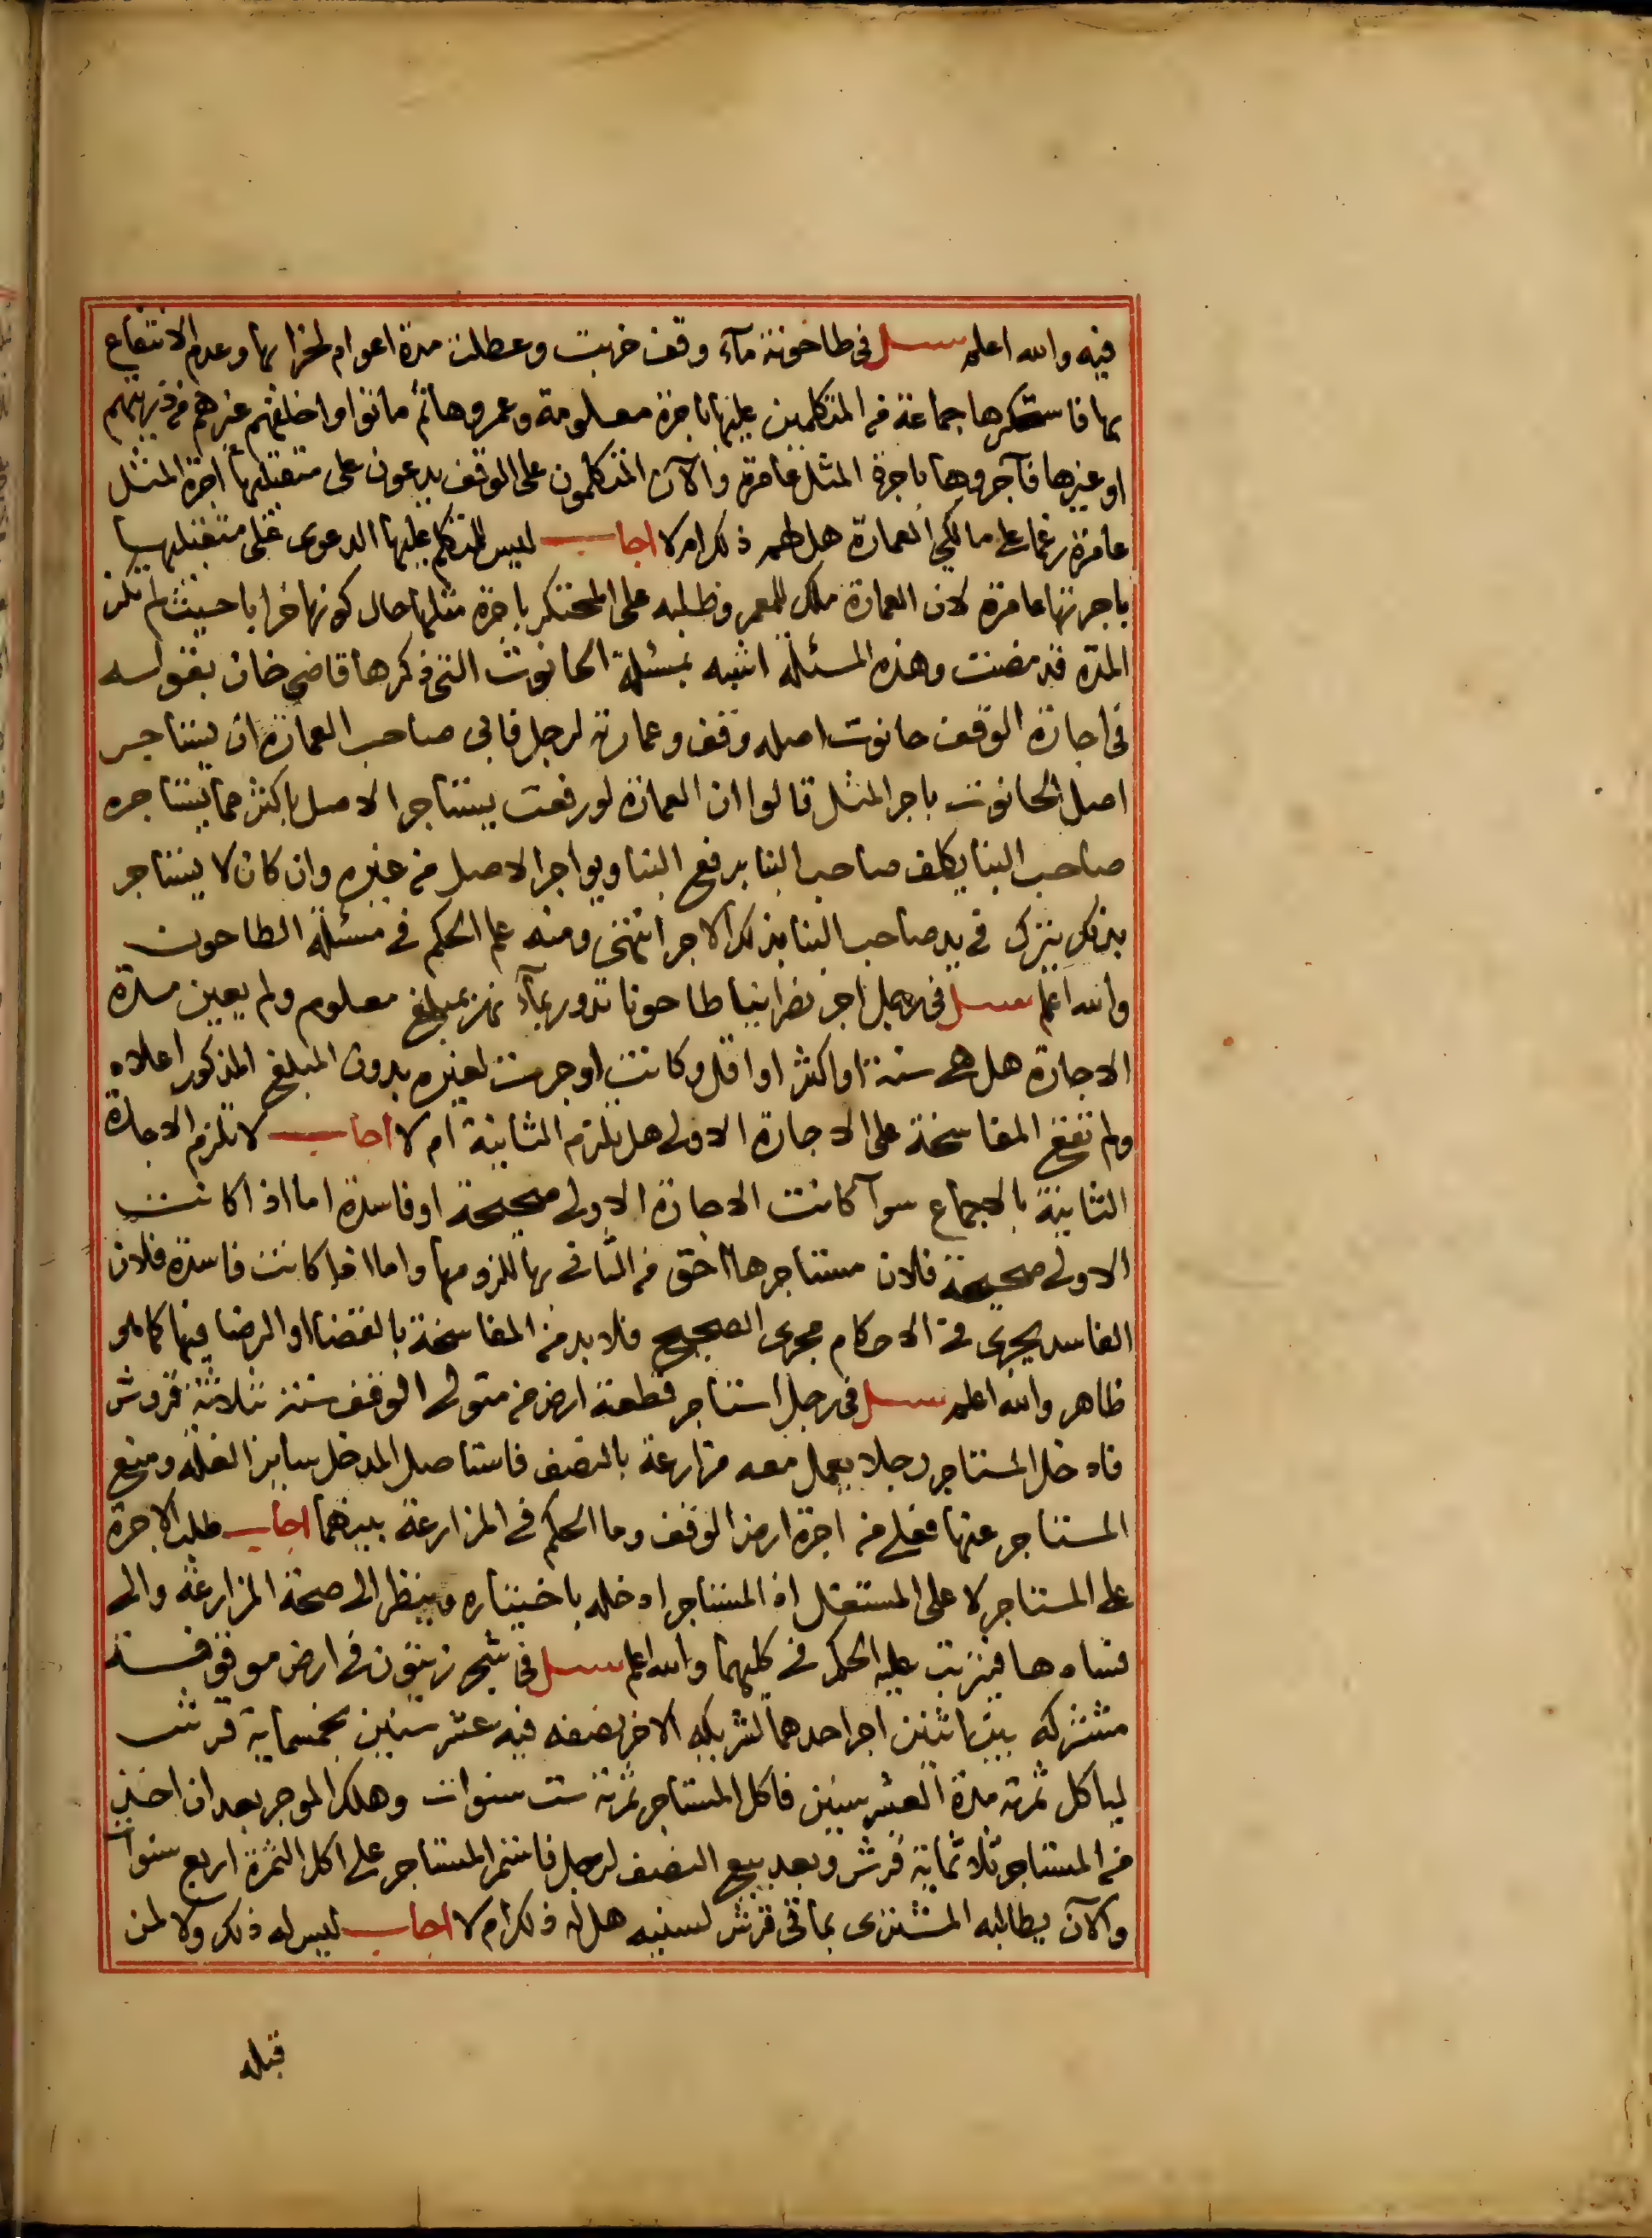 فيه والله اعلم سئل في طاحونة مآء وقف خربت وعطلت مدة اعوام لخرابها وعدم الانتفاع
بها فاستحكرها جماعة من المتكلمين عليها باجرة معلومة وعمروها ثم ماتوا واخلفهم غيرهم من ذريتهم
او غيرها فآجروها باجرة المثل عامرة والآن المتكلمون على الوقف يدعون على متقبليها اجرة المثل
عامرة زعما على مالكي العمارة هل لهم ذلك ام لا اجاب ليس للمتكلم عليها الدعوى على متقبليها
باجرتها عامرة لان العمارة ملك للمعمر وطلبه على المحتكر باجرة مثلها حال كونها خرابا حيث لم تكن
المدة قد مضت وهذه المسئلة اشبه بمسئلة الحانوت التي ذكرها قاضي خان بقوله
في اجارة الوقف حانوت اصله وقف وعمارته لرجل فابى صاحب العمارة ان يستاجر
اصل الحانوت باجر المثل قالوا ان العمارة لو رفعت يستاجر الاصل باكثر مما يستاجره
صاحب البنا يكلف صاحب البنا برفع البنا ويواجر الاصل من غيره وان كان لا يستاجر
بذلك يترك في يد صاحب البنا بذلك الاجر انتهى ومنه علم الحكم في مسئلة الطاحون
والله اعلم سئل في رجل اجر نصرانيا طاحونا تدور بمآء نهر بمبلغ معلوم ولم يعين مدة
الاجارة هل هي سنة او اكثر او اقل وكانت اوجرت لغيره بدون المبلغ المذكور اعلاه
ولم تقع المفاسخة على الاجارة الاولى هل تلزم الثانية ام لا اجاب لا تلزم الاجارة
الثانية بالاجماع سوآ كانت الاجارة الاولى صحيحة او فاسدة اما اذا كانت
الاولى صحيحة فلان مستاجرها احق من الثاني بها للزومها واما اذا كانت فاسدة فلان
الفاسد يجري في الاحكام مجرى الصحيح فلا بد من المفاسخة بالقضا او الرضا فيها كما هو
ظاهر والله اعلم سئل في رجل استاجر قطعة ارض من متولى الوقف سنة بثلاثة قروش
فادخل المستاجر رجلا يعمل معه مزارعة بالنصف فاستاصل المدخل ساير الغلة ومنع
المستاجر عنها فعلى من اجرة ارض الوقف وما الحكم في المزارعة بينهما اجاب طلب الاجرة
على المستاجر لا على المستقل اذ المستاجر ادخله باختياره وينظر الى صحة المزارعة والى
فسادها فيترتب عليه الحكم في كليهما والله اعلم سئل في شجر زيتون في ارض موقوفة
مشتركه بين اثنين اجر احدهما لشريكه الاخر نصفه فيه عشر سنين بخمسماية قرش
لياكل ثمرته مدة العشر سنين فاكل المستاجر ثمرته ست سنوات وهلك الموجر بعد ان اخذ
من المستاجر ثلاثماية قرش وبعد بيع النصف لرجل فاستمر المستاجر على اكل الثمرة اربع سنوات
والآن يطالبه المشتري بمائتي قرش لسنيه هل له ذلك ام لا اجاب ليس له ذلك ولا لمن
قبله